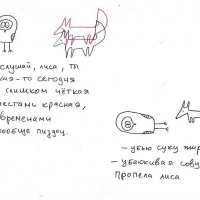 слушай, лиса, ты
кая-то сегодня
слишком чёткая
местами красная,
временами
вообще пиздец.
- убью суку жир
- убаюкивая сову
пропела лиса